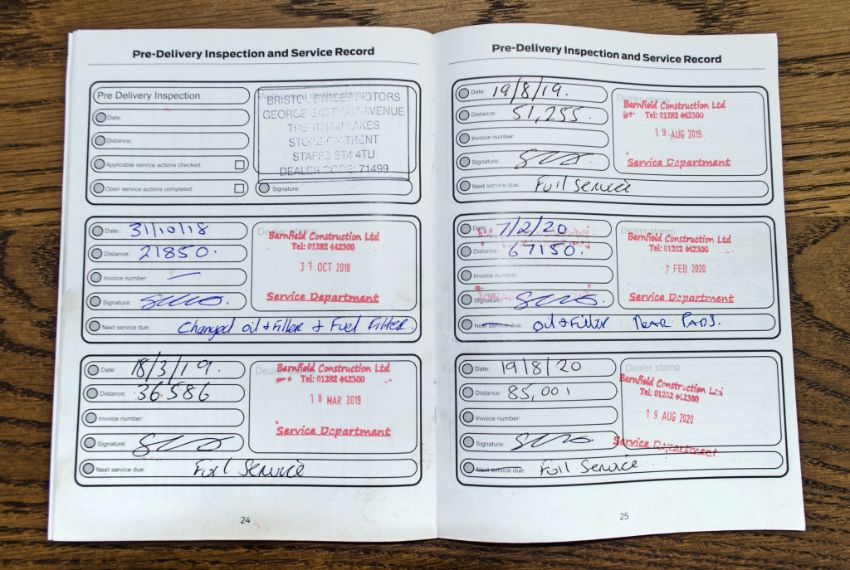 Pre-Delivery Inspection and Service Record
Pre Delivery Inspection
Date:
Distance:
Applicable service actions checked:
Open service actions completed:
BRISTOL STREET MOTORS
GEORGE EASTHAM AVENUE
TRENTHAM LAKES
STOKE ON TRENT
STAFFS ST4 4TU
DEALER CODE: 71499
Signature:
Date: 31/10/18
Distance: 21850.
Invoice number: —
Signature:
Next service due: Changed oil + Filter + Fuel Filter.
Barnfield Construction Ltd
Tel: 01282 442300
31 OCT 2018
Service Department
Date: 18/3/19.
Distance: 36586
Invoice number:
Signature:
Next service due: Full Service
Dealer
Barnfield Construction Ltd
Tel: 01282 442300
18 MAR 2019
Service Department
24
Pre-Delivery Inspection and Service Record
Date: 19/8/19.
Distance: 51,255.
Invoice number:
Signature:
Next service due: Full Service
Barnfield Construction Ltd
Tel: 01282 442300
19 AUG 2019
Service Department
Date: 7/2/20
Distance: 67150.
Invoice number:
Signature:
Next service due: Oil + Filter Rear PADS.
Dealer stamp
Barnfield Construction Ltd
Tel: 01282 442300
7 FEB 2020
Service Department
Date: 19/8/20
Distance: 85,001
Invoice number:
Signature:
Next service due: Full Service
Dealer stamp
Barnfield Construction Ltd
Tel: 01282 442300
19 AUG 2020
Service Department
25